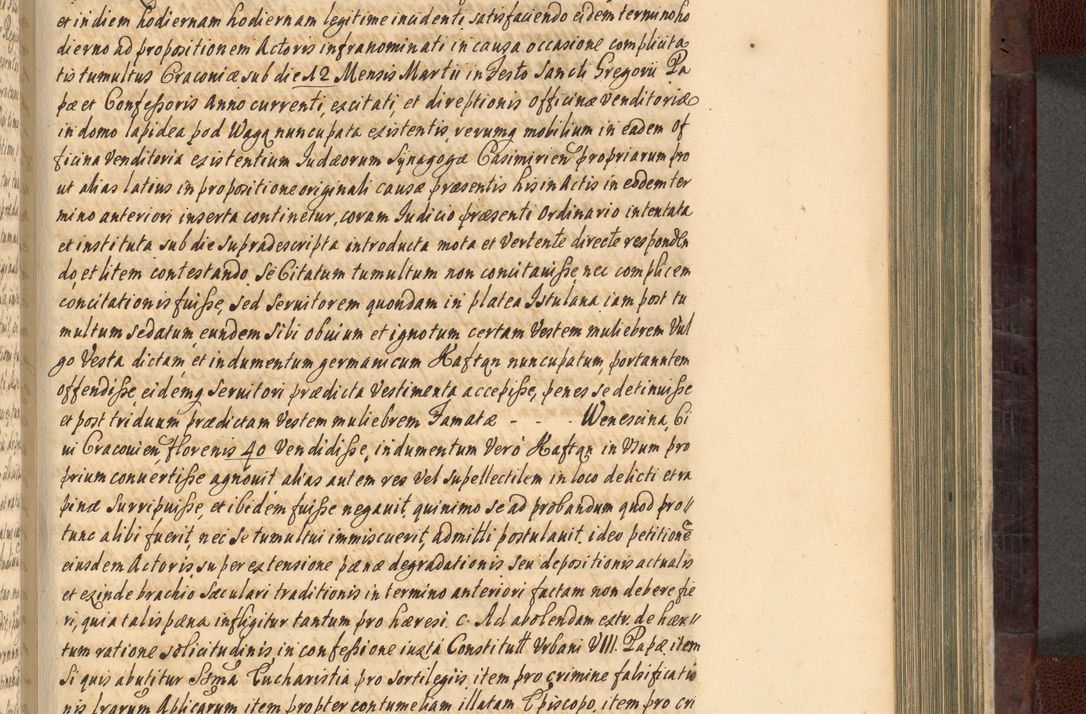 et in diem hodiernam hodiernam legitime incidenti satisfaciendo eidem termino ho
dierno ad propositionem Actoris infranominati in causa occasione complicita
tis tumultus Cracoviæ sub die 12 Mensis Martii in Festo Sancti Gregorii Pa
pæ et Confessoris Anno currenti, excitati, et direptionis officinæ venditoriæ
in domo lapidea pod Wagą nuncupata existentis, rerumq mobilium in eadem of
ficina venditoria existentium Judæorum Synagogæ Casimirien propriarum pro
ut alias latius in propositione originali causæ præsentis his in Actis in eodem ter
mino anteriori inserta continetur, coram Judicio præsenti Ordinario intentata
et instituta sub die supradescripta introducta mota et vertente directe responden
do et litem contestando, se Citatum tumultum non concitavisse nec complicem
concitationis fuisse, sed servitorem quondam in platea Istulana iam post tu
multum sedatum eundem sibi obvium et ignotum certam vestem muliebrem vul
go Vesta dictam et indumentum germanicum Kaftan nuncupatum, portantem
offendisse, eidemq servitori prædicta vestimenta accepisse, penes se detinuisse
et post triduum prædictam vestem muliebrem Famatæ - - - Wenescina, Ci
vi Cracovien florenis 40 vendidisse, indumentum vero Kaftan in usum pro
prium convertisse agnovit alias autem res vel supellectilem in loco delicti et ra
pinæ surripuisse, et ibidem fuisse negavit, quinimo se ad probandum quod pro//
tunc alibi fuerit, nec se tumultui immiscuerit, admitti postulavit, ideo petitione
eiusdem Actoris super extensione pænæ degradationis seu depositionis actualis
et exinde brachio sæculari traditionis in termino anteriori factam non debere fie
ri, quia talis pæna infligitur tantum pro hæresi, c. Ad abolendam extr. de hære//
tum ratione solicitudinis in confessione iuxta Constitutt Urbani VIII. Papæ item
Si quis abutitur SSma Eucharistia pro sortilegiis, item pro crimine falsificatio
nis lrarum Aplicarum item propter contumeliam illatam Episcopo, item pro cri